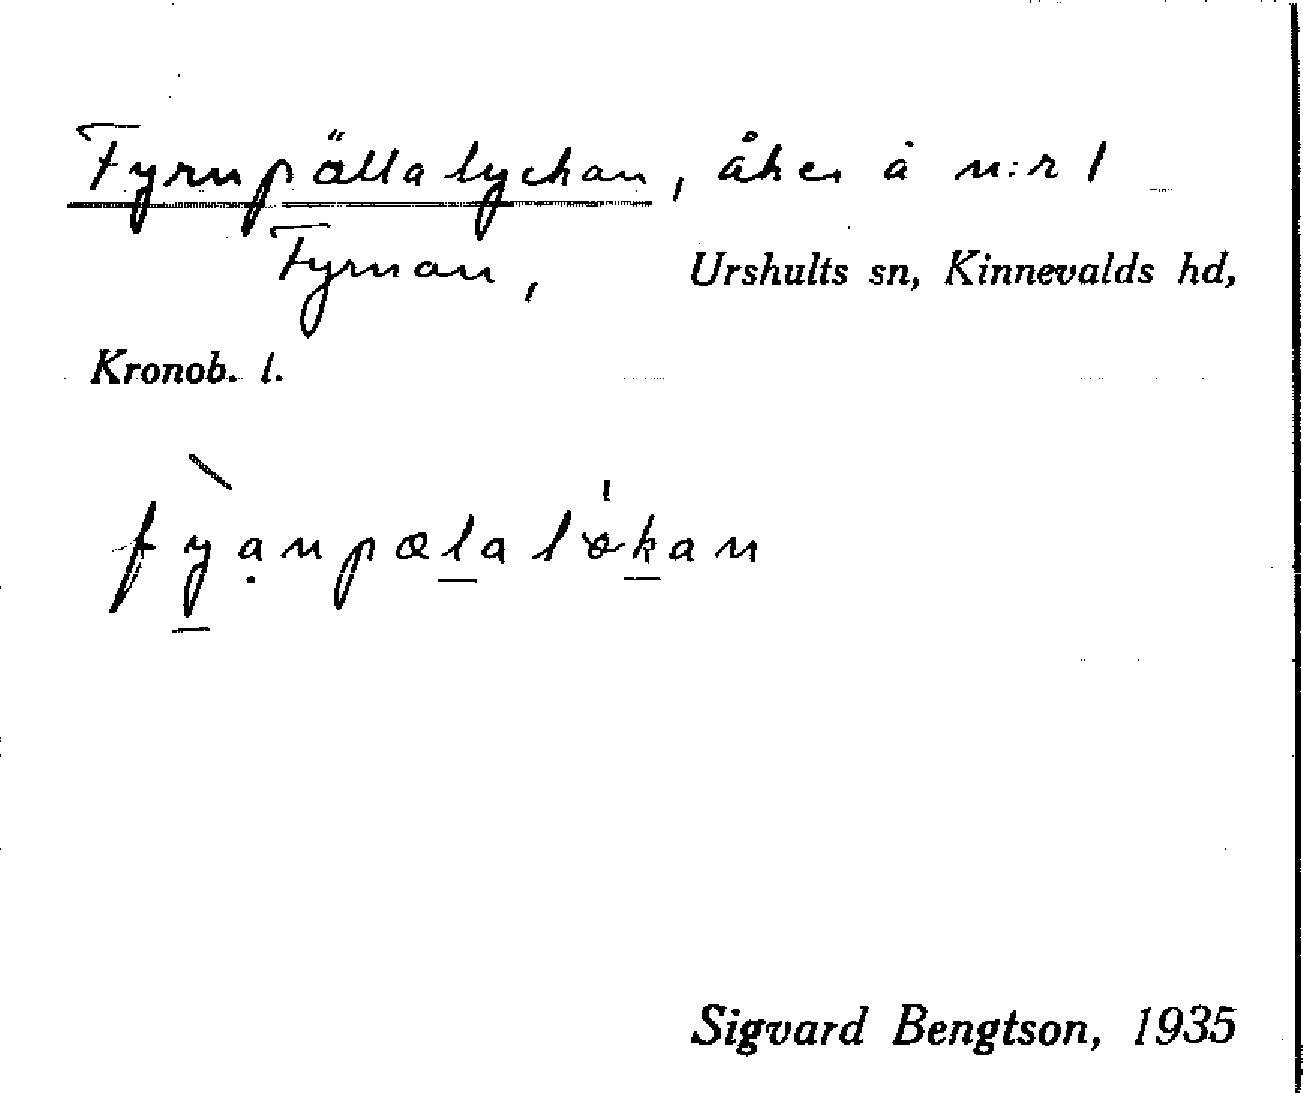 Fyrnpällalyckan, åker å n:r 1
Fyrnan, Urshults sn, Kinnevalds hd,
Kronob. l.
fy̲ạnpæl̲alök̲an
Sigvard Bengtson, 1935